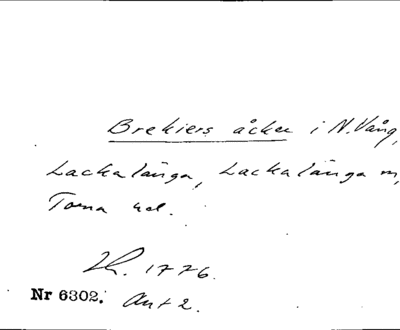 Brekiers åcker i N. Vång,
Lackalänga, Lackalänga m,
Torna hd.
Lh. 1776.
Nr 6302. Ant 2.